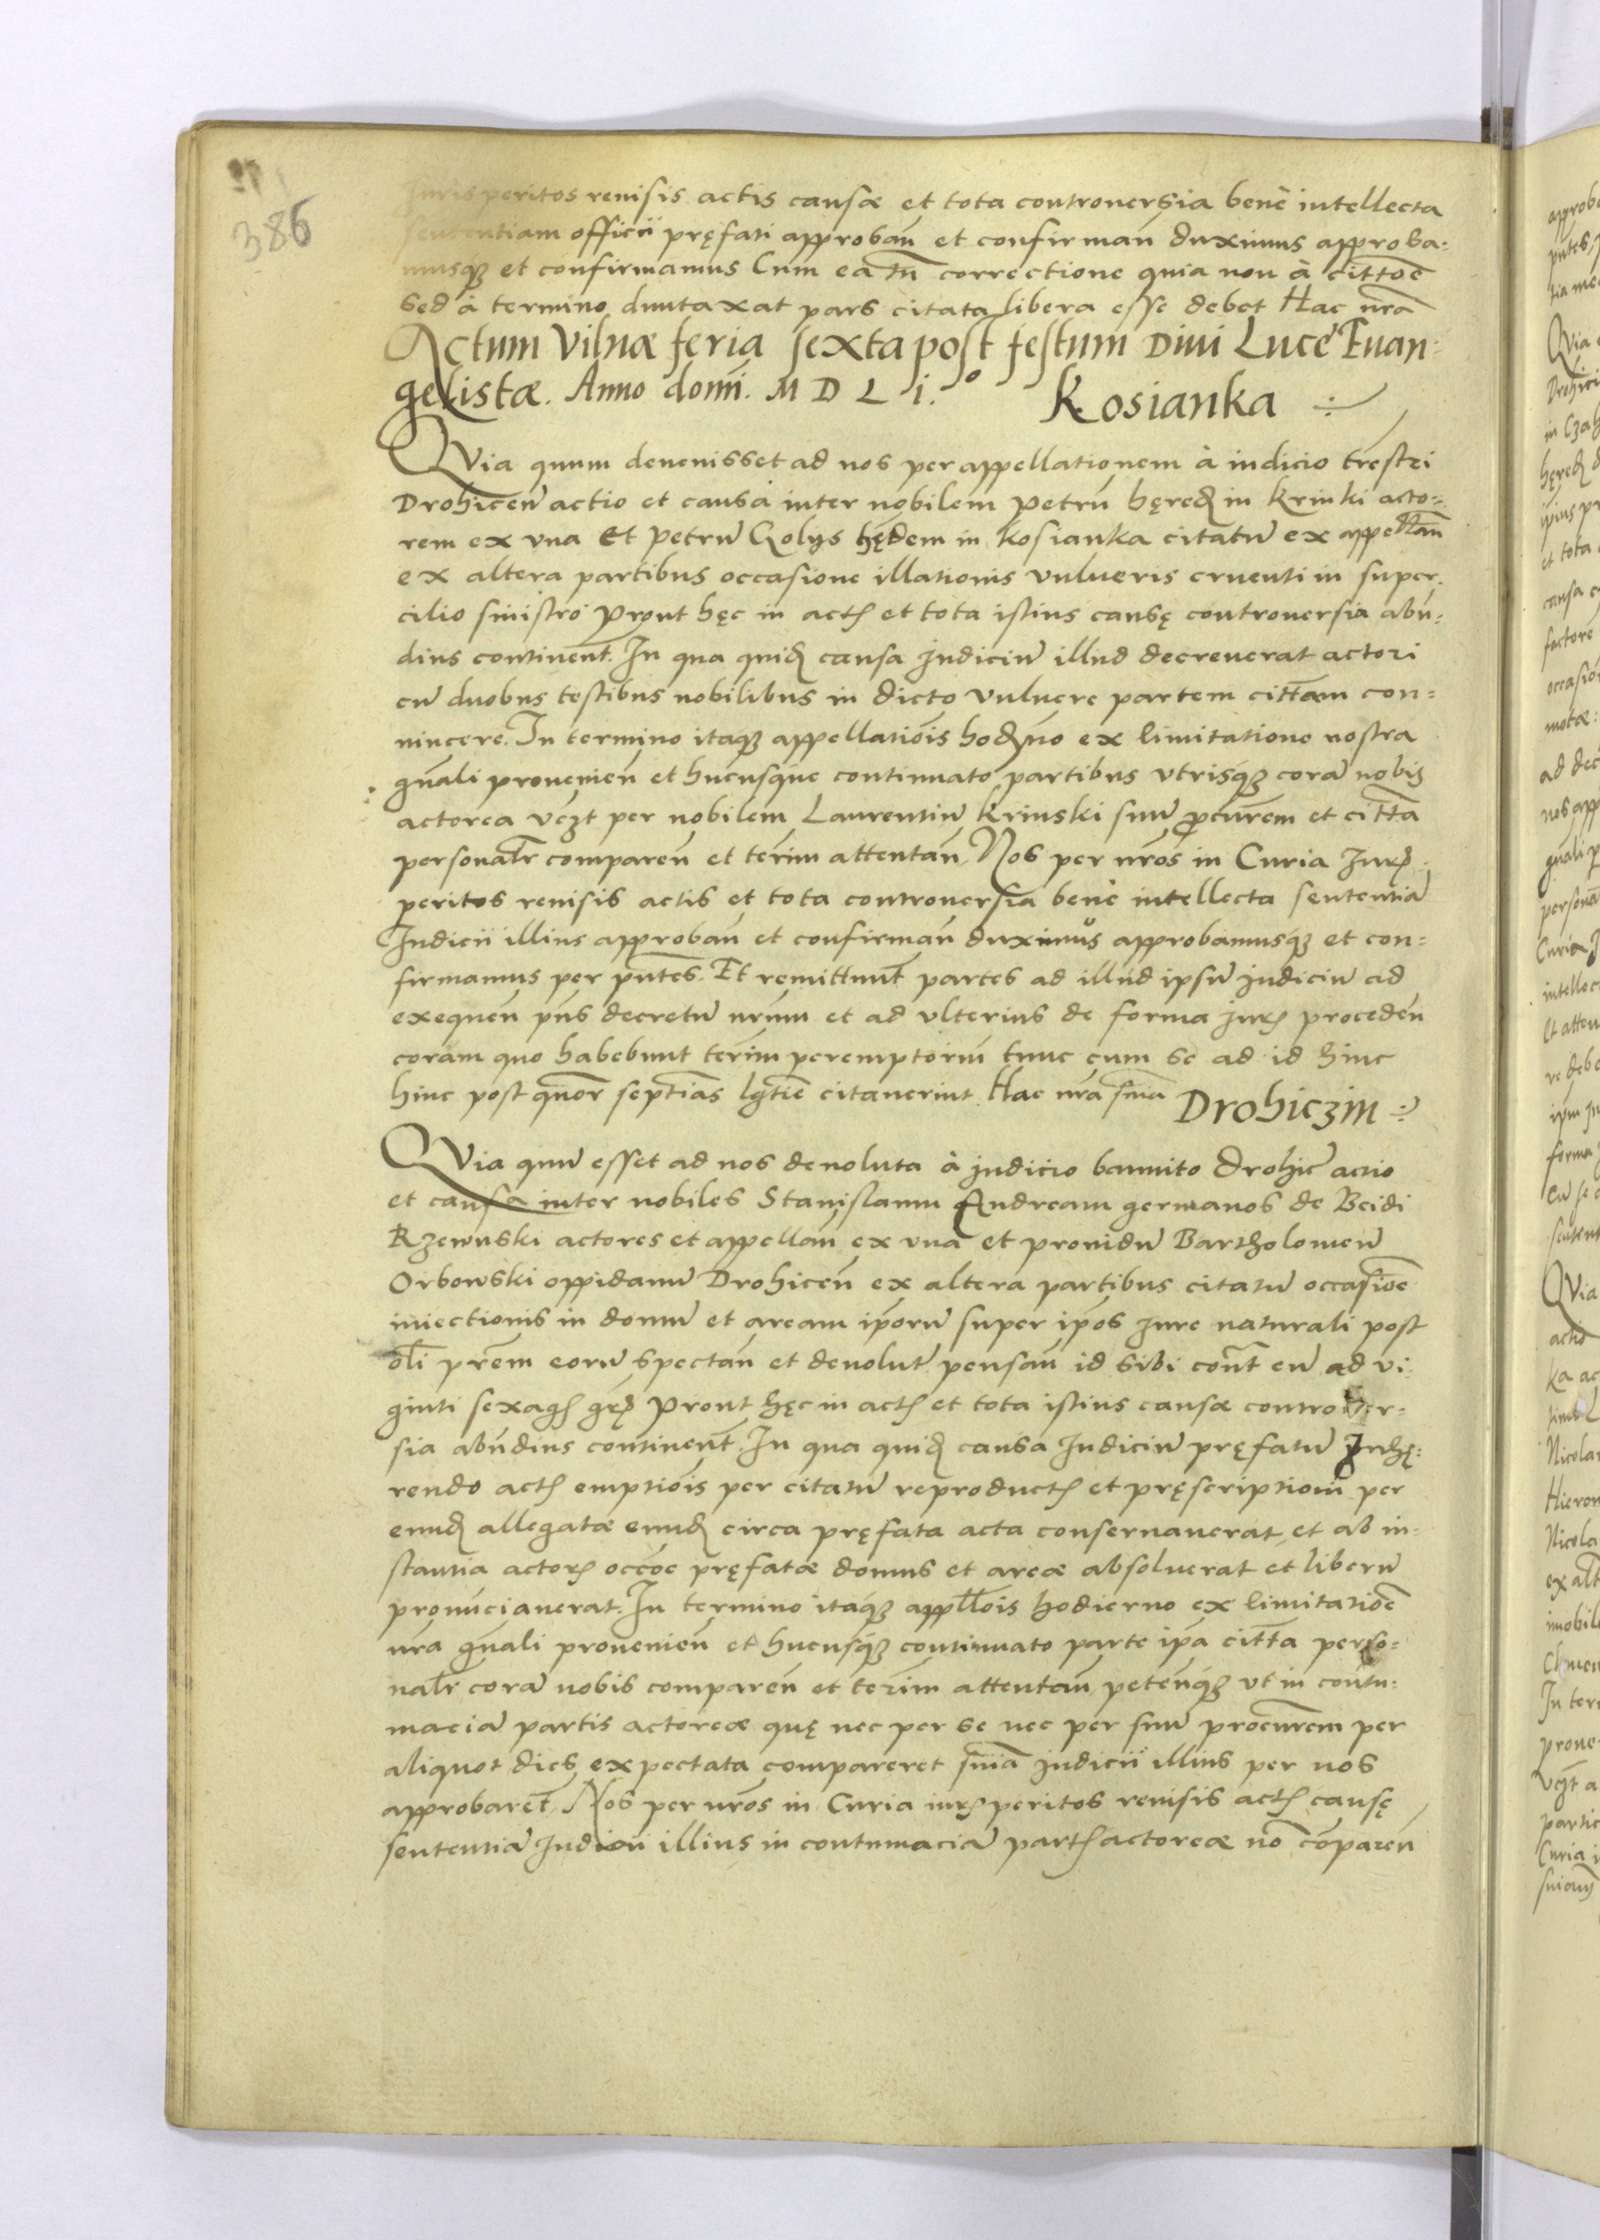 386
Jurisperitos revisis actis causæ et tota controversia benè intellecta
sententiam officii pręfati approban̄ et confirman̄ duximus approba-
musq3 et confirmamus Cum ea tn̄ correctione quia non à cittōe
sed à termino duntaxat pars citata libera esse debet Hac nr̄a
Actum Vilnæ feria sexta post festum Diui Lucę Euan-
gelistæ. Anno domī. M D L i.°
Kosianka
QVia quum deuenisset ad nos per appellationem à iudicio trēstri
Drohicen̄ actio et causa inter nobilem Petrū hęred in Krinki acto-
rem ex vna Et Petrū Golys hędem in Kosianka citatū ex appellan̄
ex altera partibus occasione illationis vulneris cruenti in super-
cilio sinistro Prout hęc in actis et tota istius causę controuersia abū-
dius continent̄. In qua quid causa Judiciū illud decreuerat actori
cū duobus testibus nobilibus in dicto vulnere partem cittam con-
uincere. In termino itaq3 appellatiōis hodyno ex limitatione nostra
gn̄ali prouenien̄ et hucusque continuato partibus vtrisq3 corā nobis
actorea vezt per nobilem Laurentiū Krinski suū procurem et citta
personalr̄ comparen̄ et term̄ attentan̄ Nos per nr̄os in Curia Juris
peritos reuisis actis et tota controuersia benè intellecta sententiā
Judicii illius approban̄ et confirman̄ duximus approbamusq3 et con-
firmamus per pn̄tes. Et remittunt̄ partes ad illud ipsū judiciū ad
exequen̄ pn̄s decretū nr̄um et ad vlterius de forma juris proceden̄
coram quo habebunt term̄ peremptoriū tunc cum se ad id hinc
hinc post quuor septīas lgtīe citauerint Hac nr̄a sn̄ia
Drohiczin
QVia quū esset ad nos deuoluta à judicio bannito Drohic̄ actio
et causa inter nobiles Stanislaum Andream germanos de Beidi
Rzewuski actores et appellan̄ ex vna et prouidū Bartholomeū
Orbowski oppidanū Drohicen̄ ex altera partibus citatū occasiōe
iniectionis in domū et aream ip̄orū super ip̄os jure naturali post
olī prēm eorū spectan̄ et deuolut̄ pensan̄ id sibi cont̄ eū ad vi-
ginti sexagis grs Prout hęc in actis et tota istius causæ controuer-
sia abūdius continent̄. In qua quid causa Judiciū pręfatū Inhę-
rendo actis emptiōis per citatū reproductis et pręscriptioni per
eund allegatæ eund circa pręfata acta conseruauerat et ab in-
stantia actoris occōe pręfatæ domus et areæ absoluerat et liberū
pronūciauerat. In termino itaq3 appllōis hodierno ex limitatiōe
nr̄a gn̄ali prouenien̄ et hucusq3 continuato parte ip̄a citta perso-
nalr̄ corā nobis comparen̄ et term̄ attentan̄ petenq3 vt in contu-
maciā partis actoreæ quę nec per se nec per suū procurem per
aliquot dies expectata compareret sn̄ia judicii illius per nos
approbaret̄. Nos per nr̄os in Curia iurisperitos reuisis actis causę
sententiā Judicii illius in contumaciā partis actoreæ nō cōparen̄